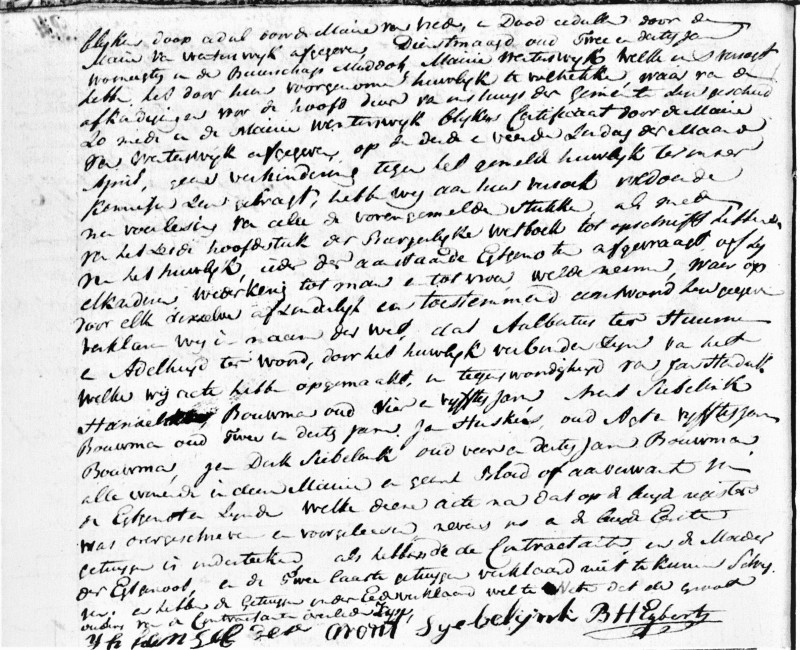 blijkens doop cedul door de Maire van Vreden, en Dood cedulle door den
Maire van Winterswyk afgegeven, Dienstmaagd oud Twee en dertig Jaar
woonagtig in de Buurschap Maire Winterswyk welke ons versogt
hebbe, het door hun voorgenomen huwelyk te voltrekke, waar van de
afkondigingen voor de hoofd deur van ons huys der gemeente zen geschied
zo mede in de Mairie Winterswyk blykens Certificaat door de Maire
van Winterswyk afgegeven, op de derde en vierde Zondag der Maand
April, geene verhindering tegen het gemelde huwelyk ter onser
Kennisse zen gebragt, hebbe wy aan hun versoek voldoende
na voorlesing van alle de vorengemelde stukken, als mede
van het zesde hoofdstuk der Burgerlyke Wetboek tot opschrift hebbende
van het huwelyk, ieder der aanstaande Egtgenoten afgevraagt, of zy
elkandren wederkerig tot man en tot vrouw wilde neemen, waar op
door elk derzelve afzonderlyk en toestemmend antwoord zen gegeven
verklaren wy in naam der wet, dat Aalbertus ter Huurne
en Adelheid ter Woord, door het huwelyk verbonden zyn van het
welke wy acte hebbe opgemaakt, in tegenwoordigheid van Jan Hendrik
Bouwman oud Vier en vyftig Jaar, Arent Siebelink
Bouwman oud Twee en dertig Jaar, Jan Huskes, oud Acht en vyftig Jaar
Bouwman, Jan Derk Siebelink oud veer en dertig Jaar Bouwman
alle wonende in deese Mairie en geene Bloed of aanverwant van
de Egtgenoten zynde welke deese acte na dat op de beyde registers
was overgeschreven en voorgeleesen, nevens ons en de beyde Eerste
getuygen is ondertekend, als hebbende de Contractante en de Moeder
der Egtgenoot, en de Twee laatste getuygen verklaard niet te kunnen Schry
ven, en hebbe de getuygen onder Eede verklaard wel te Weten dat de groot
ouders van de Contractante overleden zyn,
Aront Syebelijnk B H Egberts